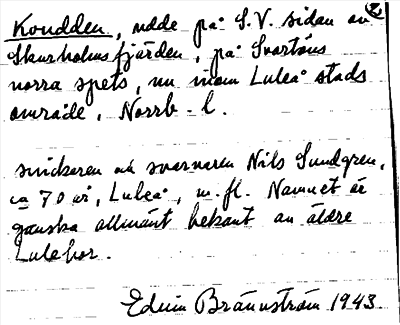 Koudden, udde på S.V. sidan av
Skurholmsfjärden, på Svartöns
norra spets, nu inom Luleå stads
område, Norrb. l.
snickaren och svarvaren Nils Sundgren,
ca 70 år, Luleå, m. fl. Namnet är
ganska allmänt bekant av äldre
Lulebor.
Edvin Brännström 1943.
2